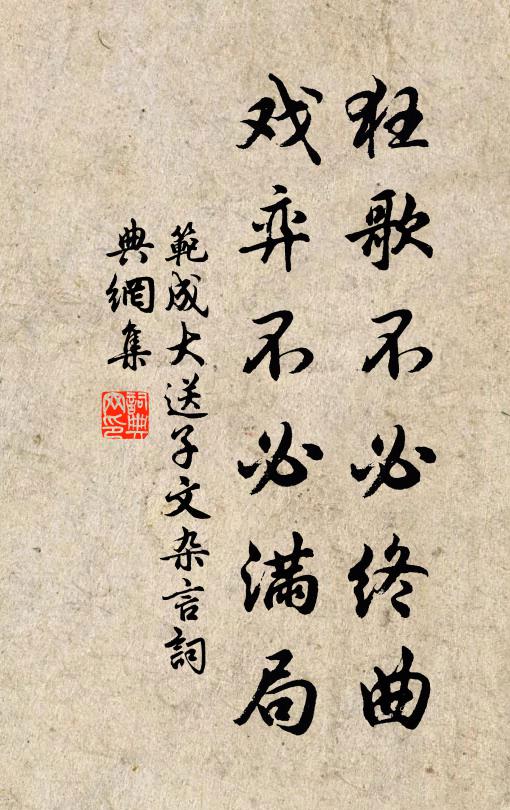 狂歌不必终曲
戏弈不必满局
範成大送子文杂言詞
典網集
詞典网印